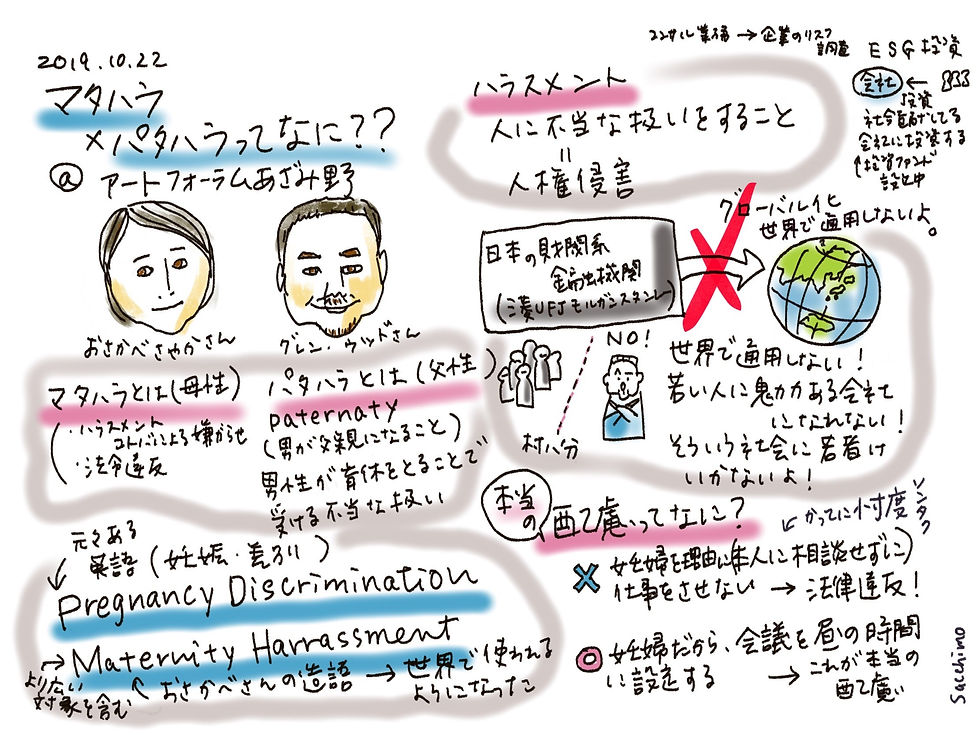 2019.10.22
マタハラ
×パタハラってなに??
@アートフォーラムあざみ野
おさかべさやかさん
グレン・ウッドさん
マタハラとは(母性)
・ハラスメント
コトバによる嫌がらせ
・法令違反
パタハラとは(父性)
paternaty
(男が父親になること)
男性が育休をとることで
受ける不当な扱い
元々ある
英語(妊娠・差別)
Pregnancy Discrimination
→Maternity Harrassment
より広い
対象を含む
おさかべさんの造語→世界で使われる
ようになった
ハラスメント
人に不当な扱いをすること
=
人権侵害
コンサル業務→企業のリスク
調査
ESG投資
会社←
投資
会社に投資する
↑投資ファンド
設立中
グローバル化
世界で通用しないよ。
日本の財閥系
金融機関
(三菱UFJモルガンスタンレー)
NO!
村八分
世界で通用しない!
若い人に魅力ある会社
になれない!
そういう社会に若者は
いかないよ!
本当の
配慮ってなに?
↙かってに忖度
ソンタク
×妊婦を理由に(本人に相談せずに)
仕事をさせない→法律違反!
○妊婦だから、会議を昼の時間
に設定する→これが本当の
配慮
Sachino